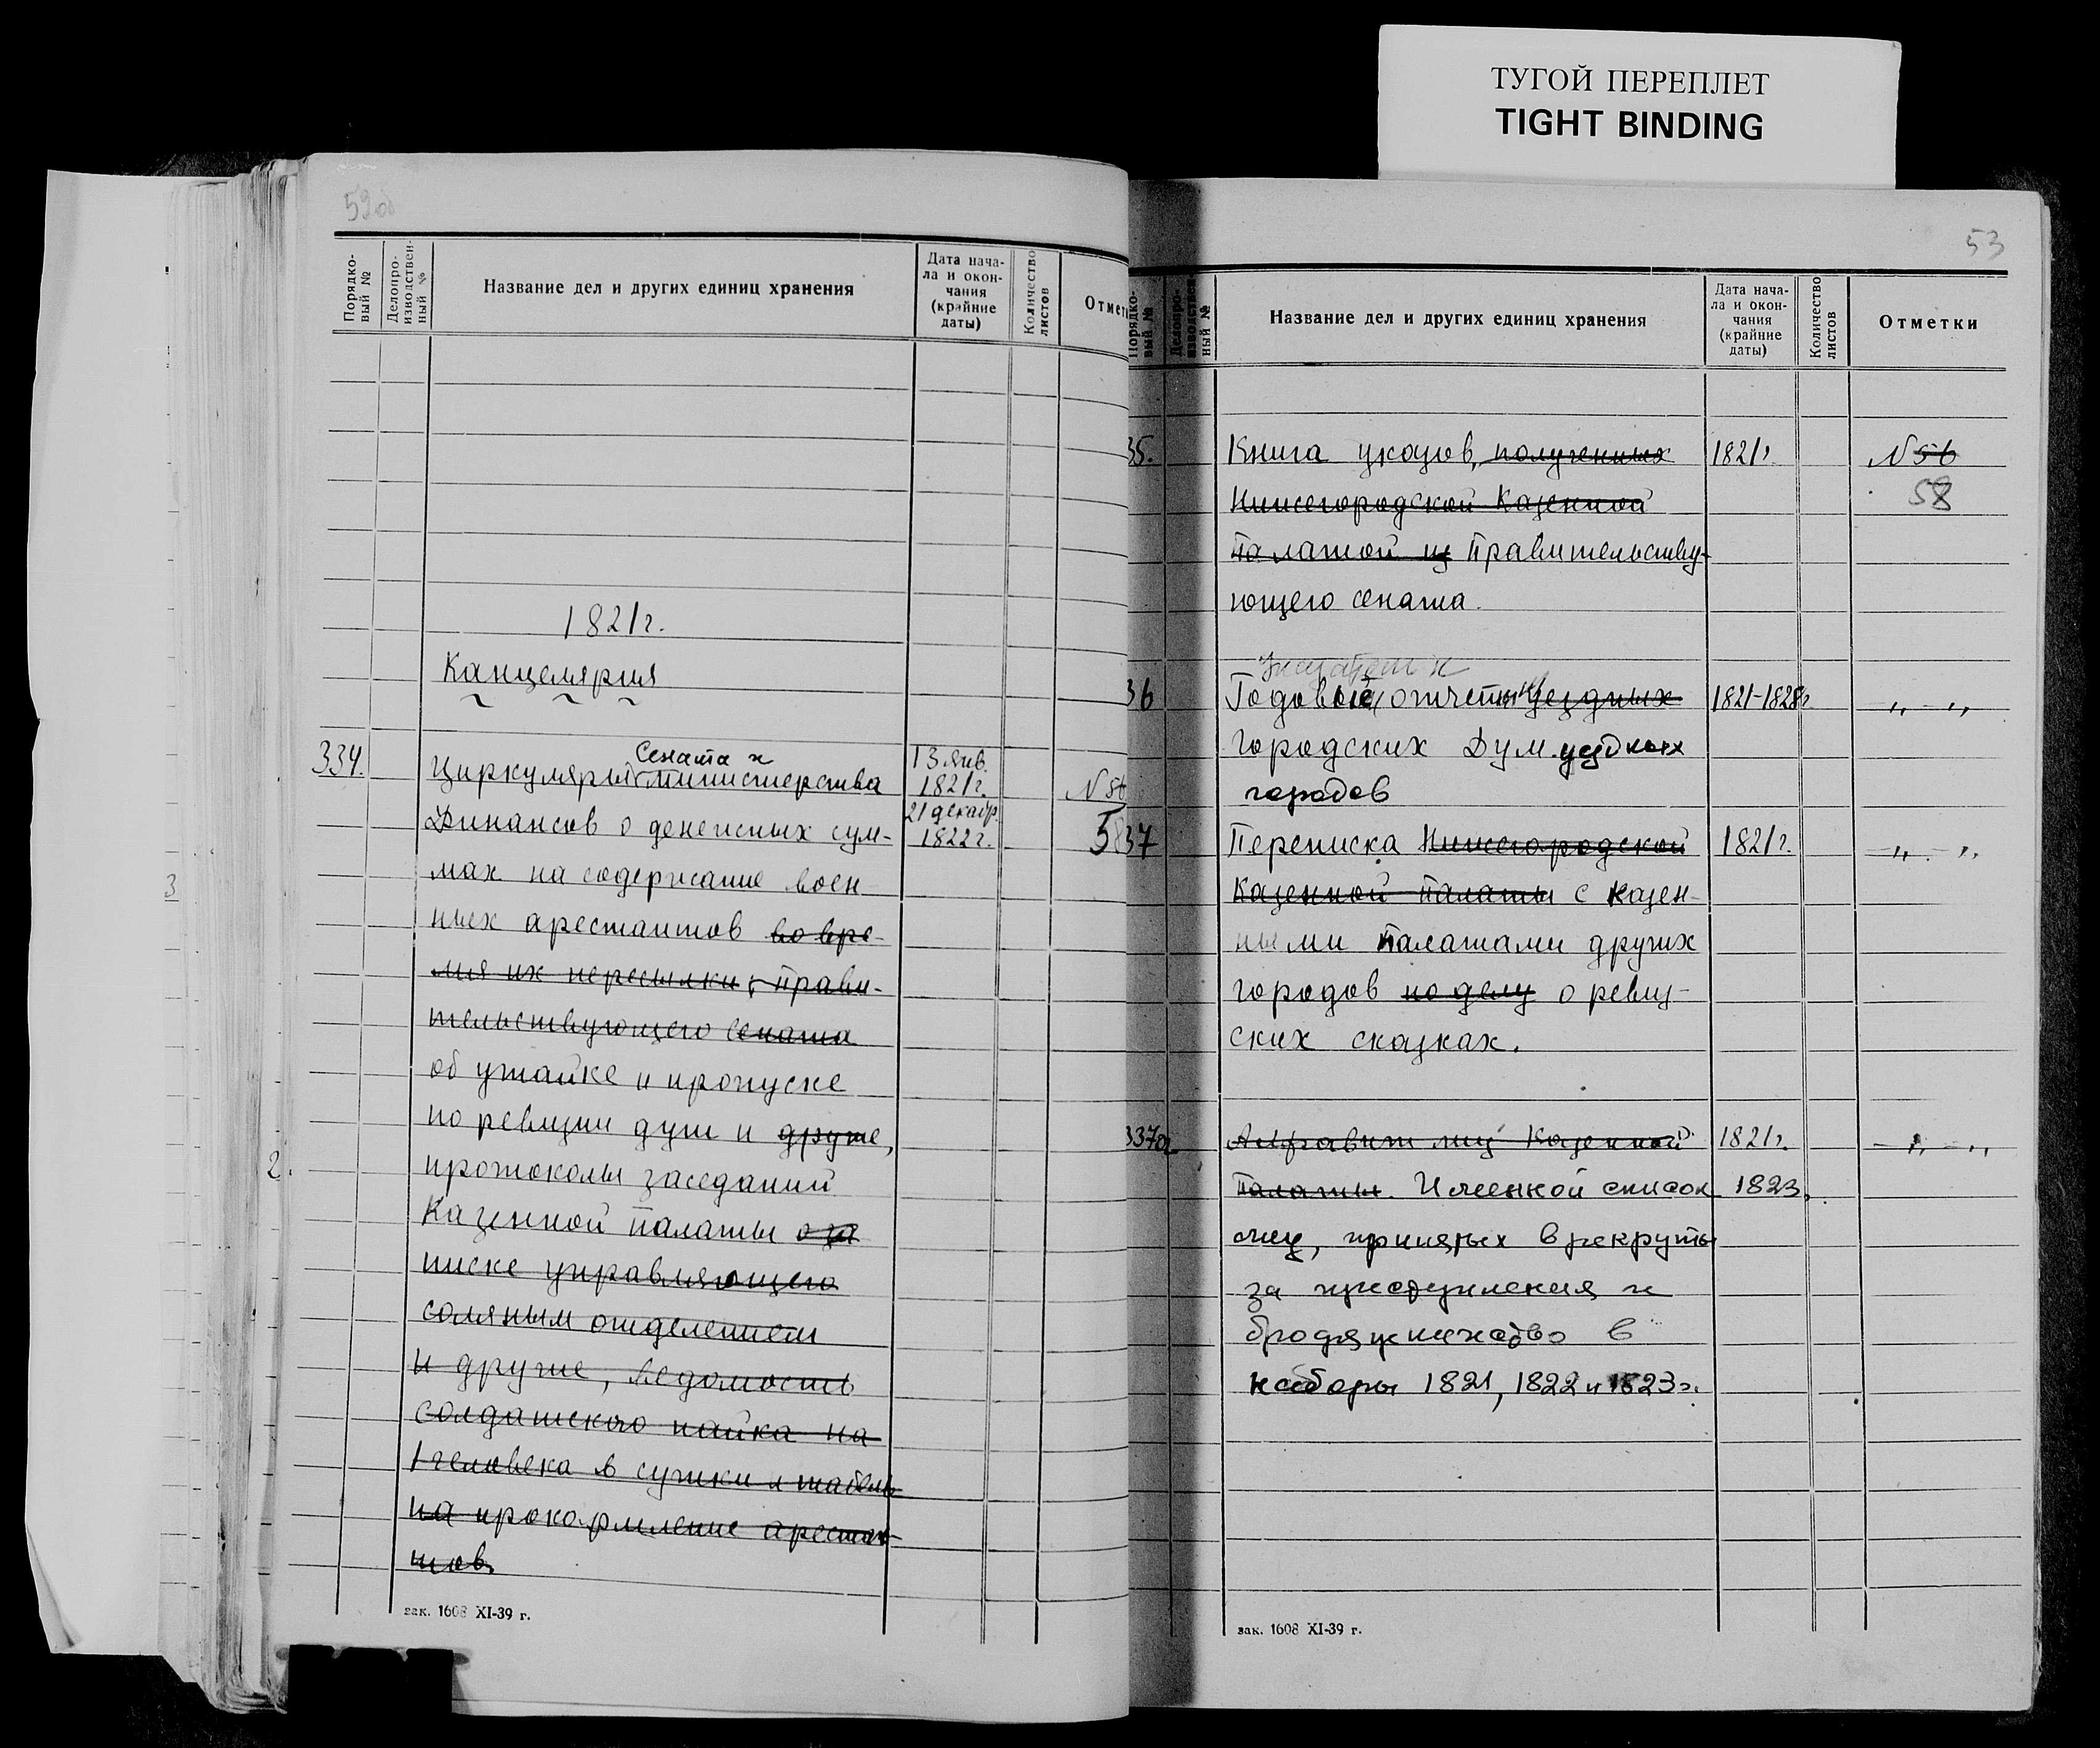 ТУГОЙ ПЕРЕПЛЕТ
TIGHT BINDING
52об
Порядко-
вый №
Делопро-
изводствен-
ный №
Название дел и других единиц хранения
Дата нача-
ла и окон-
чания
(крайние
даты)
Количество
листов
Отмет
1821г.
Канцелярия
334.
Сената и
Циркуляры министерства
Финансов о денежных сум-
мах на содержание воен-
ных арестантов во вре-
мя их пересылки, прави-
тельствующего сената
об утайке и пропуске
по ревизии душ и другие,
протоколы заседаний
Казенной палаты о за
писке управляющего
соляным отделением
и другие, ведомость
солдатского пайка на
1 человека в сутки и табель
на прокормление арестан-
тов.
13 янв.
1821г.
21 декабр.
1822г.
N 56
58
зак. 1608 XI-39 г.
3
2.
53
Порядко-
вый №
Делопро-
изводствен
ный №
Название дел и других единиц хранения
Дата нача-
ла и окон-
чания
(крайние
даты)
Количество
листов
Отметки
35.
Книга указов, полученных
Нижегородской Казенной
Палатой из Правительству-
ющего сената.
1821г.
N 56
58
36
Годовые отчеты уездных
городских Дум уездных
городов
1821-1828г
„ „
37
Переписка Нижегородской
Казенной Палаты с казен-
ными палатами других
городов по делу о ревиз-
ских сказках.
1821г.
„ „
337а.
Алфавит лиц Казенной
Палаты. Именной список
лиц, принятых в рекруты
за преступления и
бродяжничество в
наборы 1821, 1822 и 1823г.
1821г.
1823
„ „
зак. 1608 XI-39 г.